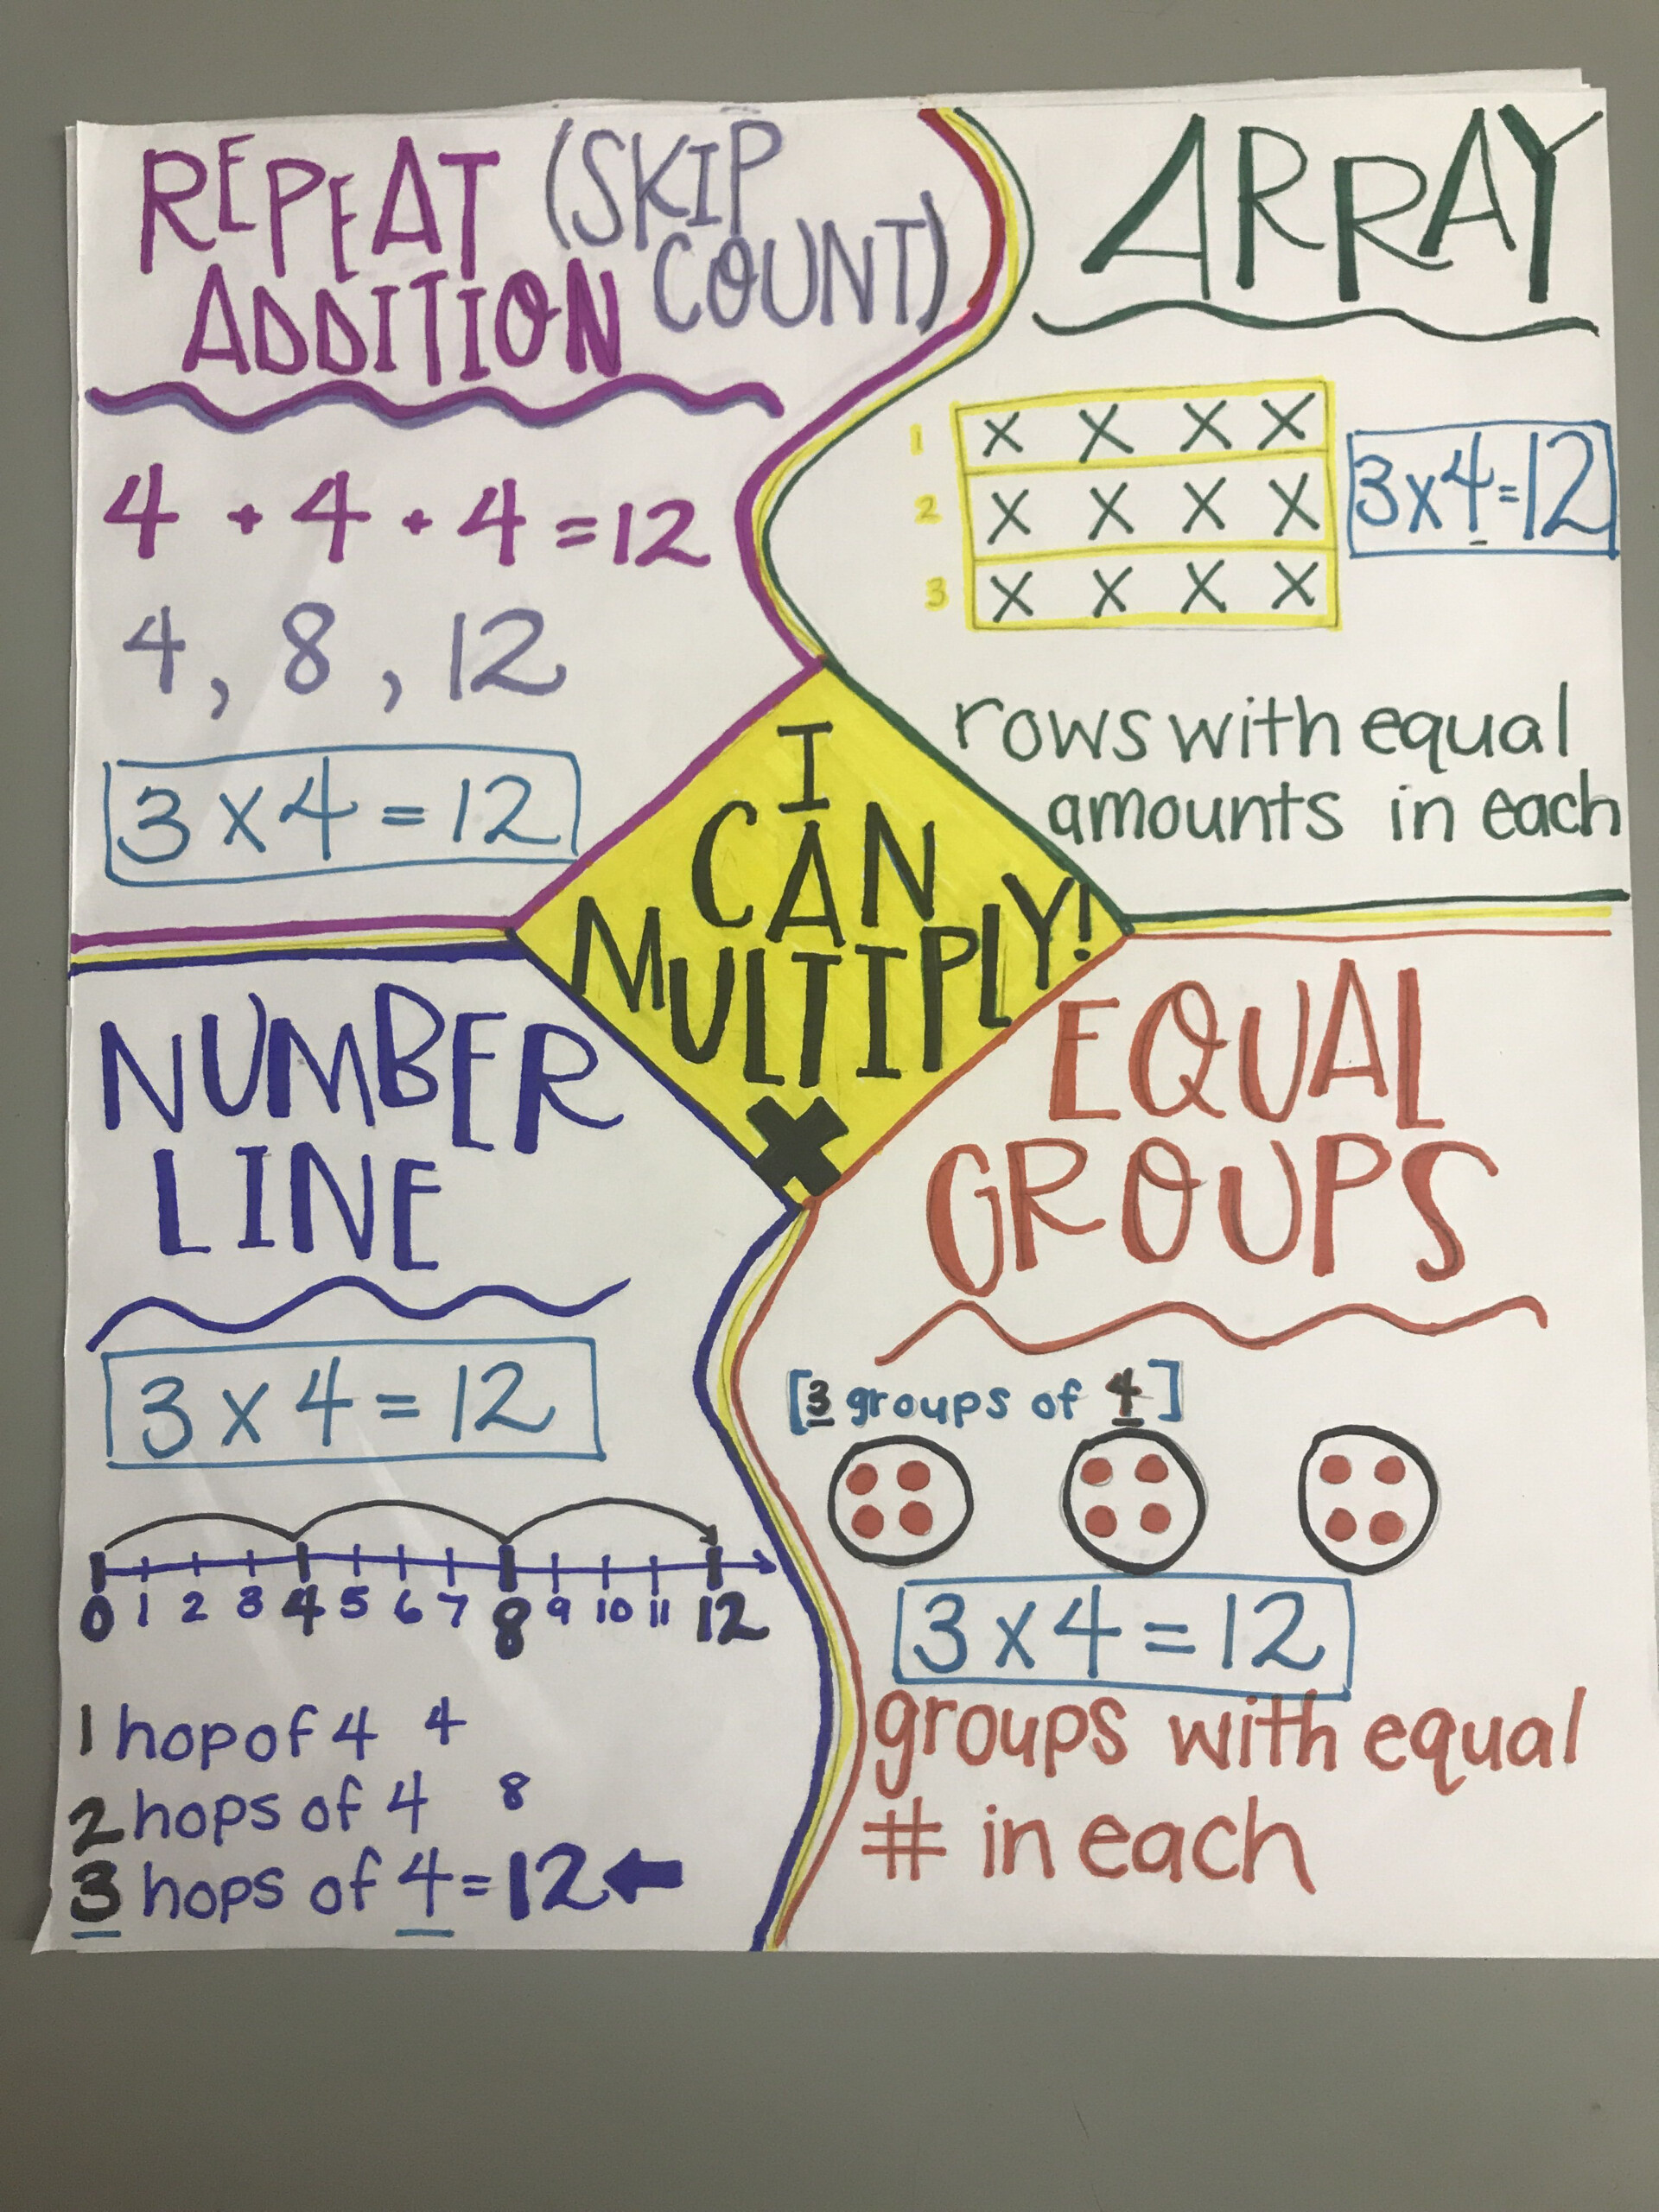 REPEAT (SKIP
ADDITION COUNT)
4 + 4 + 4 = 12
4, 8, 12
3 x 4 = 12
ARRAY
1 X X X X
2 X X X X
3 X X X X
3x4=12
rows with equal
amounts in each
I
CAN
MULTIPLY!
X
NUMBER
LINE
3 x 4 = 12
0 1 2 3 4 5 6 7 8 9 10 11 12
1 hop of 4 4
2 hops of 4 8
3 hops of 4 = 12
EQUAL
GROUPS
[3 groups of 4]
3 x 4 = 12
groups with equal
# in each